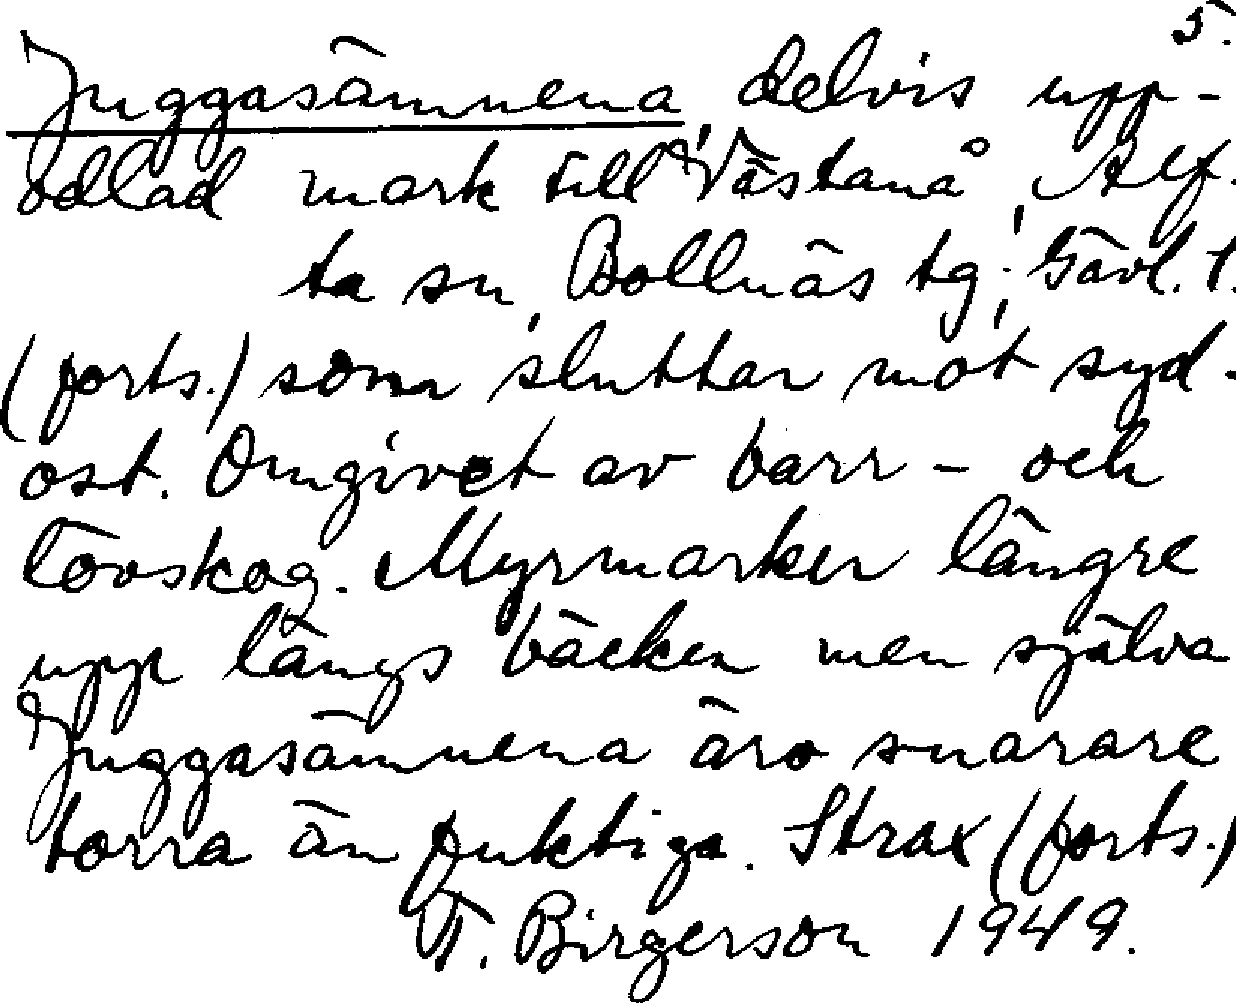 5.
Juggasämnena, delvis upp-
odlad mark till Västanå, Alf-
ta sn, Bollnäs tg; Gävl. l.
(forts.) som sluttar mot syd-
ost. Omgivet av barr- och
lövskog. Myrmarker längre
upp längs bäcken men själva
Juggasämnena äro snarare
torra än fuktiga. Strax (forts.)
T. Birgerson 1949.